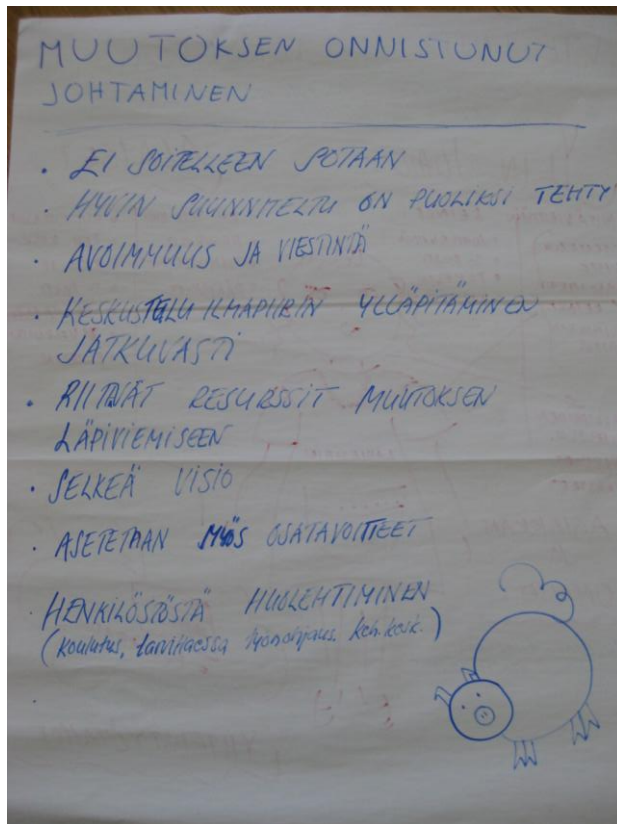 MUUTOKSEN ONNISTUNUT
JOHTAMINEN
• EI SOITELLEEN SOTAAN
• HYVIN SUUNNITELTU ON PUOLIKSI TEHTY
• AVOIMMUUS JA VIESTINTÄ
• KESKUSTELU ILMAPIIRIN YLLÄPITÄMINEN
JATKUVASTI
• RIITTÄVÄT RESURSSIT MUUTOKSEN
LÄPIVIEMISEEN
• SELKEÄ VISIO
• ASETETAAN MYÖS OSATAVOITTEET
• HENKILÖSTÖSTÄ HUOLEHTIMINEN
(koulutus, tarvittaessa työnohjaus, keh.kesk.)